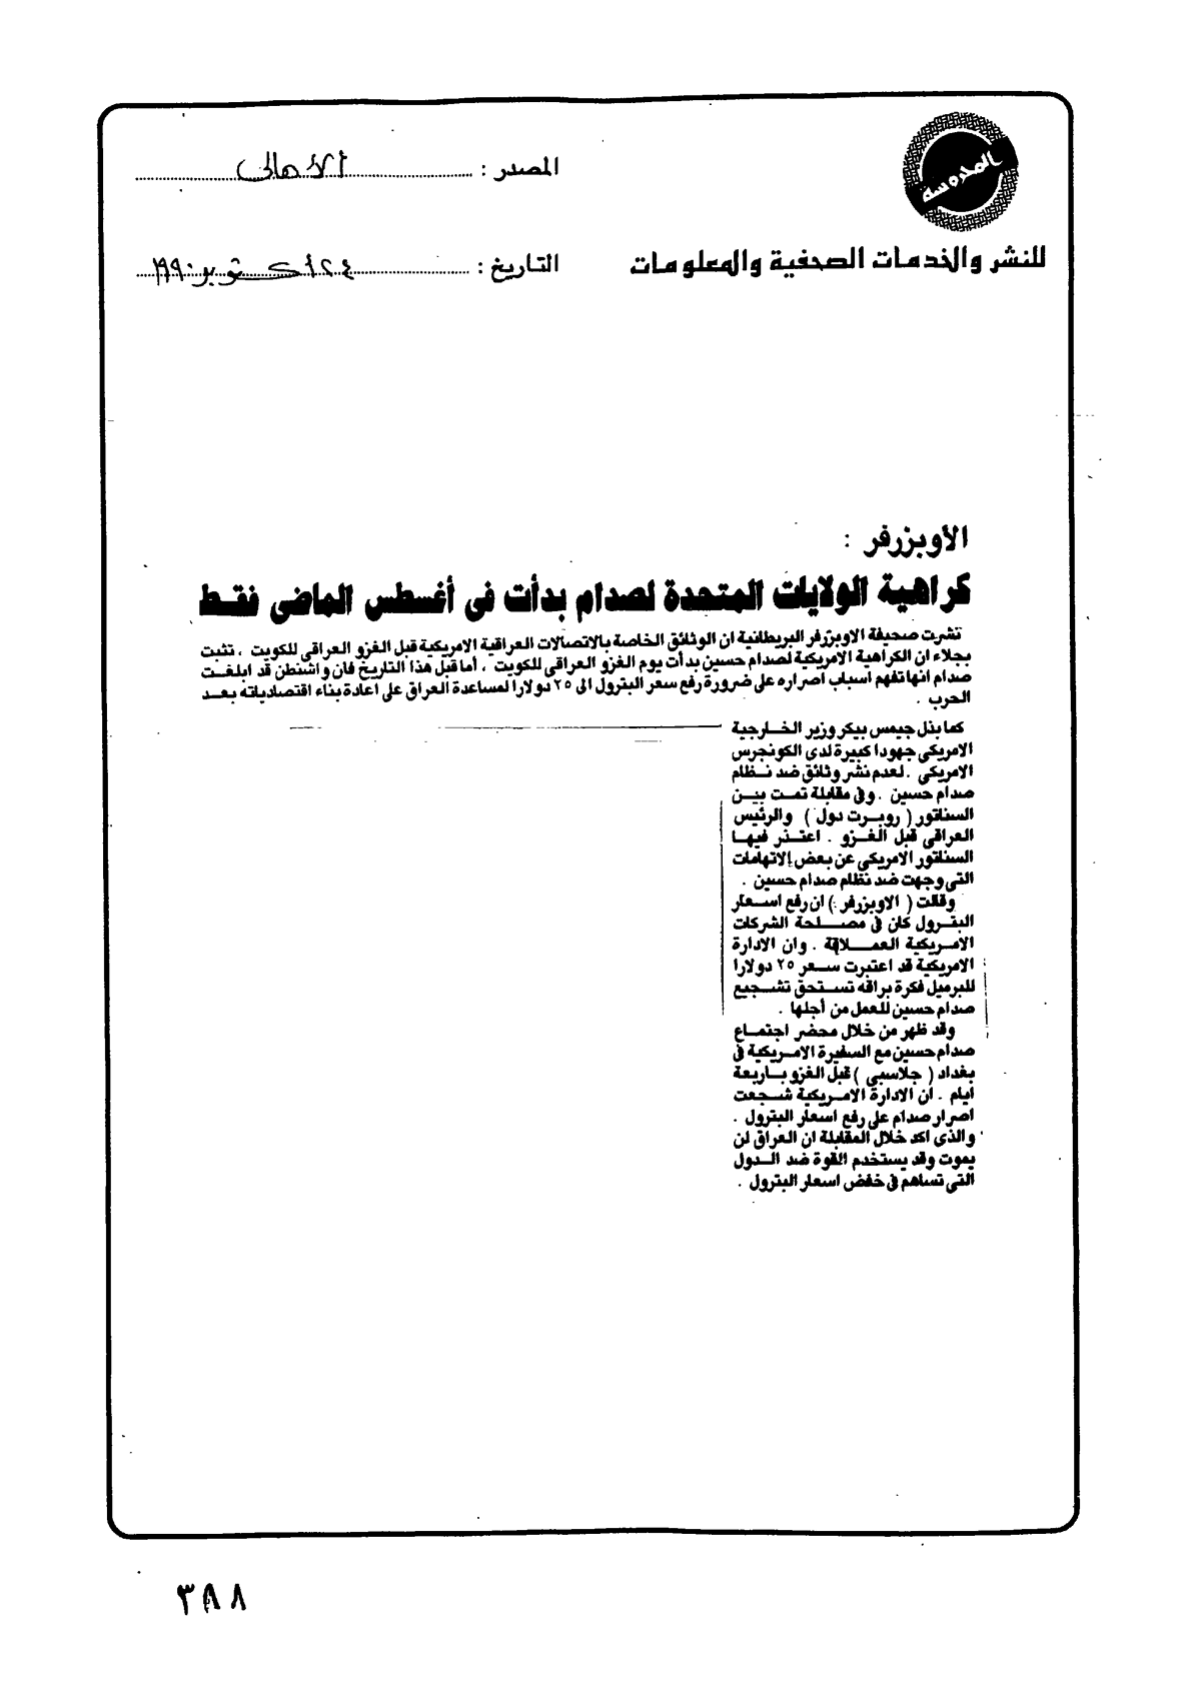 المحروسة
المصدر : الأهالى
للنشر والخدمات الصحفية والمعلومات
التاريخ : ٢٤ أكتوبر ١٩٩٠
الأوبزرفر :
كراهية الولايات المتحدة لصدام بدأت فى أغسطس الماضى فقط
نشرت صحيفة الاوبزرفر البريطانية ان الوثائق الخاصة بالاتصالات العراقية الامريكية قبل الغزو العراقى للكويت ، تثبت
بجلاء ان الكراهية الامريكية لصدام حسين بدأت يوم الغزو العراقى للكويت ، أما قبل هذا التاريخ فان واشنطن قد ابلغت
صدام انها تفهم اسباب اصراره على ضرورة رفع سعر البترول الى ٢٥ دولارا لمساعدة العراق على اعادة بناء اقتصادياته بعد
الحرب .
كما بذل جيمس بيكر وزير الخارجية
الامريكى جهودا كبيرة لدى الكونجرس
الامريكى . لعدم نشر وثائق ضد نظام
صدام حسين . وفى مقابلة تمت بين
السناتور ( روبرت دول ) والرئيس
العراقى قبل الغزو . اعتذر فيها
السناتور الامريكى عن بعض الاتهامات
التى وجهت ضد نظام صدام حسين .
وقالت ( الاوبزرفر ) ان رفع اسعار
البترول كان فى مصلحة الشركات
الامريكية العملاقة . وان الادارة
الامريكية قد اعتبرت سعر ٢٥ دولارا
للبرميل فكرة براقه تستحق تشجيع
صدام حسين للعمل من أجلها .
وقد ظهر من خلال محضر اجتماع
صدام حسين مع السفيرة الامريكية فى
بغداد ( جلاسبي ) قبل الغزو باربعة
ايام . ان الادارة الامريكية شجعت
اصرار صدام على رفع اسعار البترول .
والذى اكد خلال المقابلة ان العراق لن
يموت وقد يستخدم القوة ضد الدول
التى تساهم فى خفض اسعار البترول .
٣٨٨